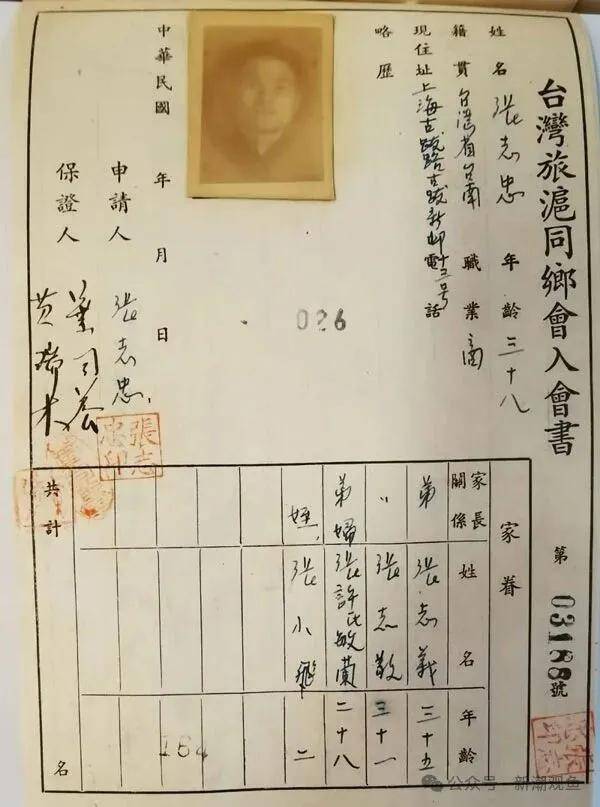 台灣旅滬同鄉會入會書
第 03188 號
姓名 張志忠 年齡 三十八
籍貫 台灣省台南 職業 商
現住址 上海古拔路古拔新邨十三号 電話
略歷
026
中華民國 年 月 日
申請人 張志忠
保證人
黃瑞木
張志忠印
家眷
家長關係 姓名 年齡
弟 張志義 三十五
〃 張志敬 三十一
弟婦 張許氏敏蘭 二十八
姪 張小飛 二
164
共計 名
公众号 · 新潮观鱼